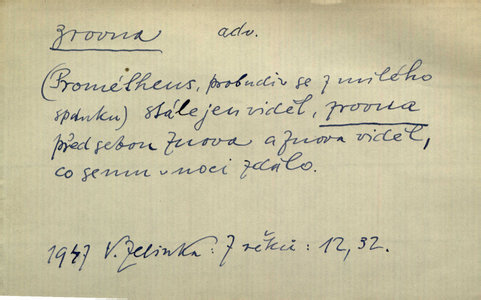 zrovna adv.
(Prométheus, probudiv se z milého
spánku) stále jen viděl, zrovna
před sebou znova a znova viděl,
co se mu v noci zdálo.
1947 V. Zelinka: Z réku: 12, 32.